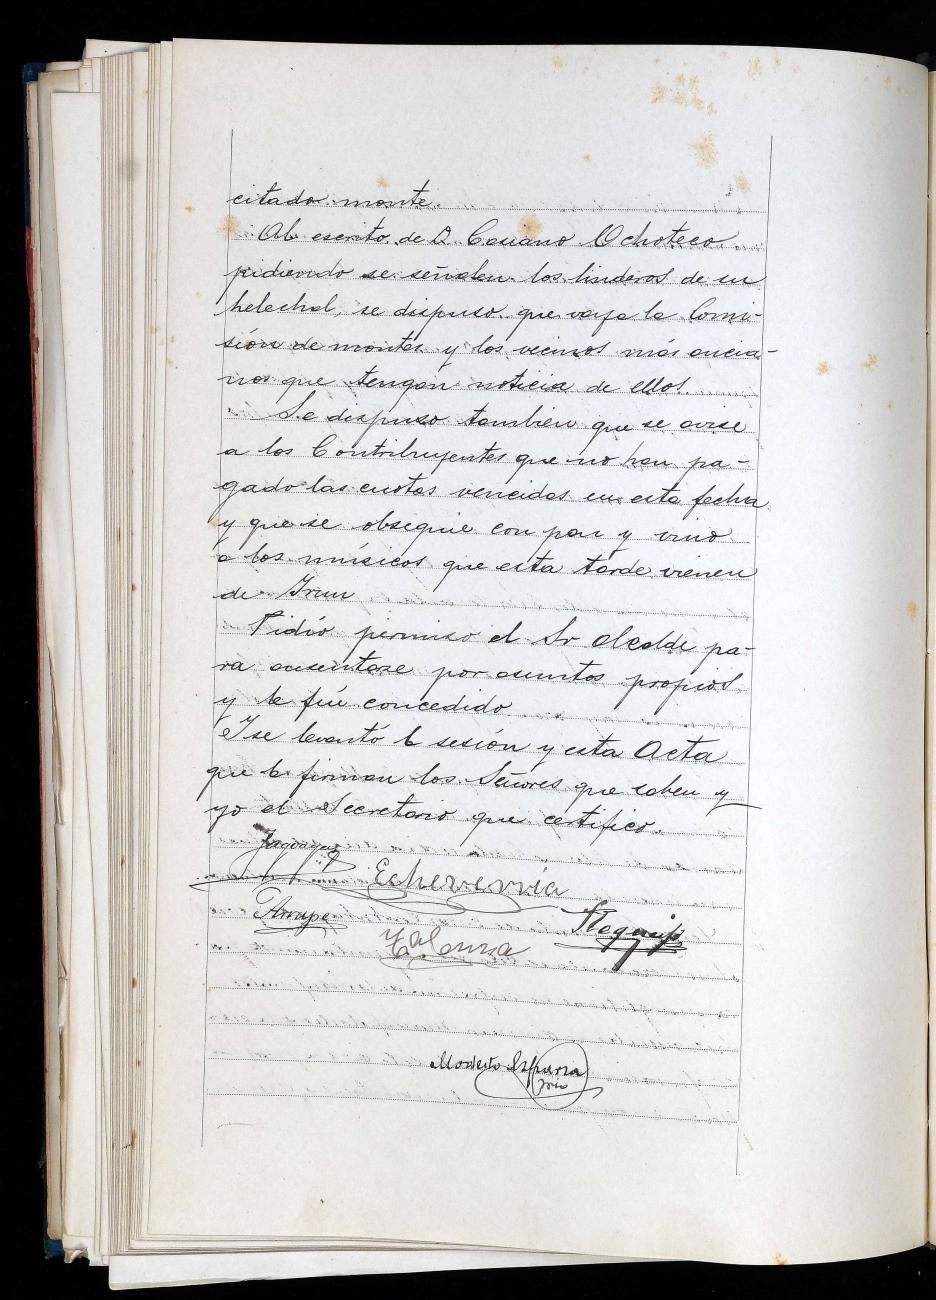 citado monte.
Al escrito de D. Casiano Ochoteco
pidiendo se señalen los linderos de su
helechal, se dispuso que vaya la Comi-
sión de montes y los vecinos más ancia-
nos que tengan noticia de ellos.
Se dispuso tambien que se avise
a los Contribuyentes que no han pa-
gado las cuotas vencidas en esta fecha
y que se obsequie con pan y vino
a los músicos que esta tarde vienen
de Irun
Pidió permiso el Sr Alcalde pa-
ra ausentarse por asuntos propios
y le fué concedido
Y se levantó la sesión y esta Acta
que la firman los Señores que saben y
yo el Secretario que certifico.
Echeverria
Arrupe
Modesto Esparza
Srio